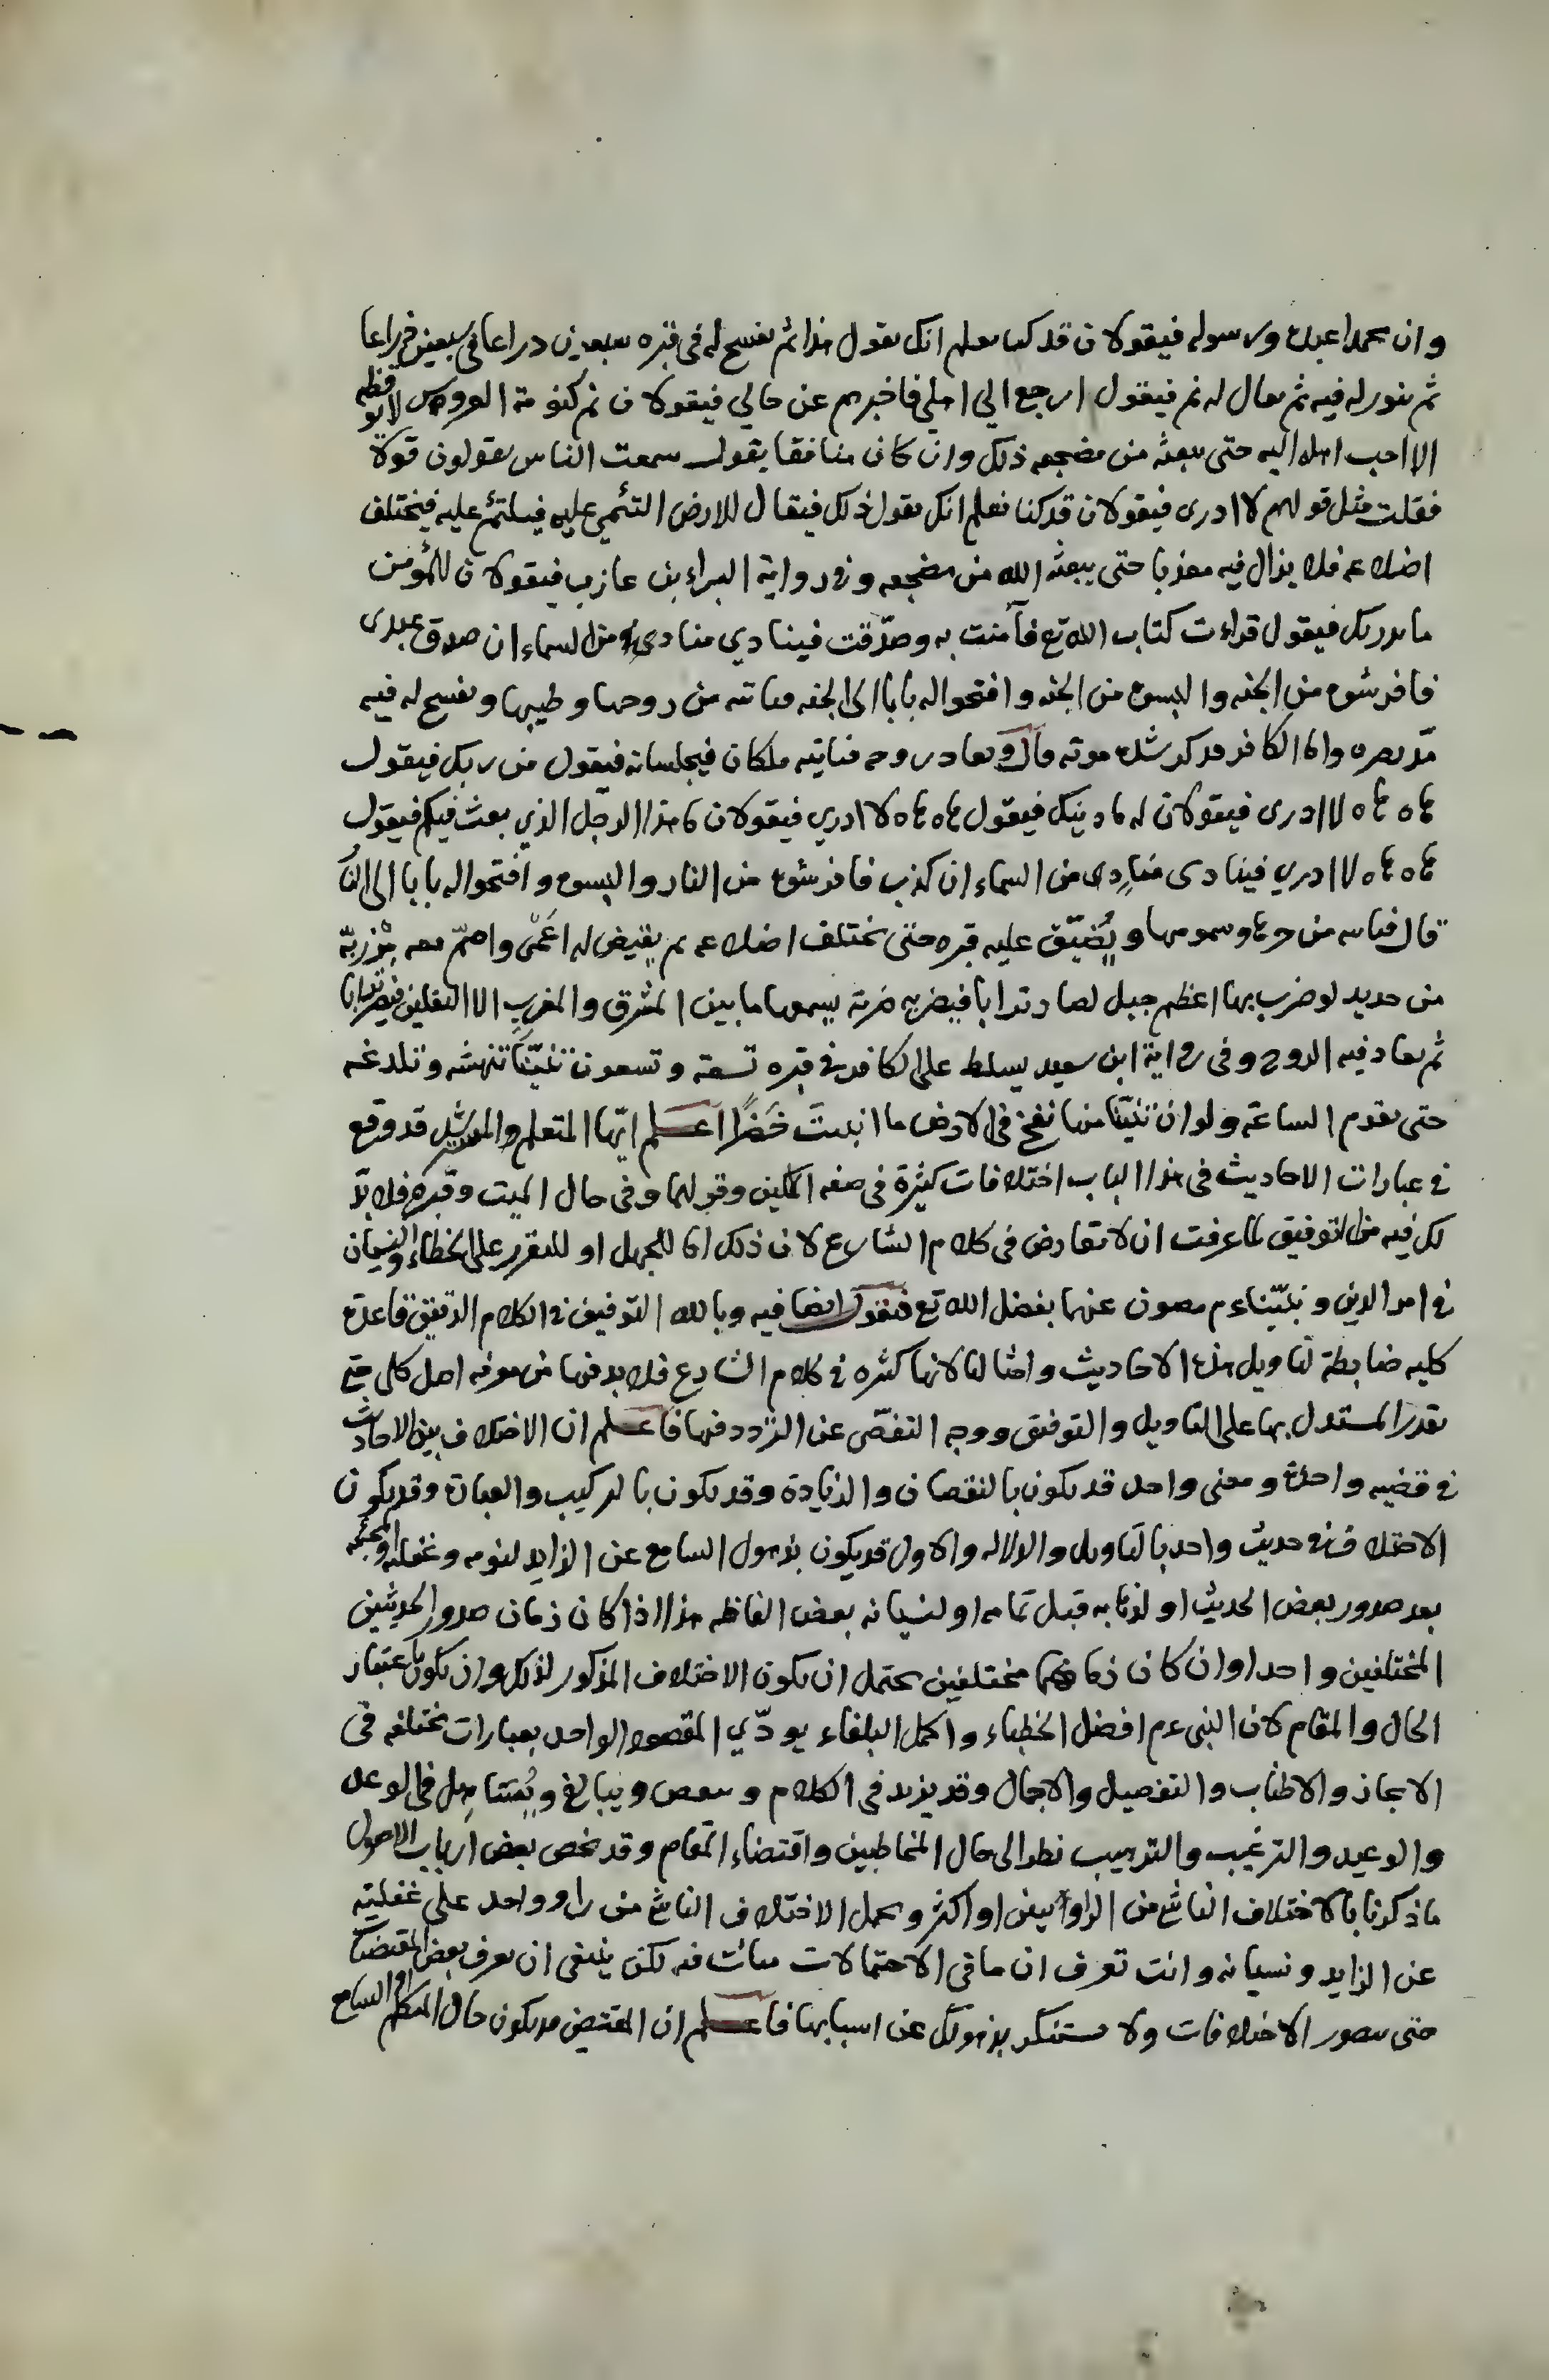 وان محمدا عبده ورسوله فيقولان قد كنا نعلم انك تقول هذا ثم يفسح له فى قبره سبعين ذراعا فى سبعين ذراعا
ثم ينور له فيه ثم يقال له نم فيقول ارجع الي اهلي فاخبرهم عن حالي فيقولان نم كنومة العروس لا يوقظه
الا احب اهله اليه حتى يبعثه من مضجعه ذلك وان كان منافقا يقول سمعت الناس يقولون قولا
فقلت مثل قولهم لا ادرى فيقولان قد كنا نعلم انك تقول ذلك فيقال للارض التئمي عليه فيلتئم عليه فيختلف
اضلاعه فلا يزال فيه معذبا حتى يبعثه الله من مضجعه وفى رواية البراء بن عازب فيقولان للمؤمن
ما يدريك فيقول قراءت كتاب الله تع فآمنت به وصدّقت فينادي منادى من السماء ان صدق عبدى
فافرشوه من الجنه والبسوه من الجنه وافتحوا له بابا الى الجنه فياتيه من روحها وطيبها ويفسح له فيه
مدّ بصره واما الكافر فذكر شدة موته قال ويعاد روحه فياتيه ملكان فيجلسانه فيقول من ربك فيقول
هاه هاه لا ادرى فيقولان له ما دينك فيقول هاه هاه لا ادري فيقولان ما هذا الرّجل الذي بعث فيكم فيقول
هاه هاه لا ادري فينادى منادٍى من السماء ان كذب فافرشوه من النار والبسوه وافتحوا له بابا الى النا
قال فياتيه من حرها وسمومها ويُضيّق عليه قبره حتى تختلف اضلاعه ثم يقيض له اعمى واصمّ معه مرزبّة
من حديد لو ضرب بها اعظم جبل لصار ترابا فيضربه ضربة يسمعها ما بين المشرق والمغرب الا الثقلين فيصير ترابا
ثم يعاد فيه الروح وفى رواية ابن سعيد يسلط على الكافر فى قبره تسعة وتسعون تنّينًا تنهشه وتلدغه
حتى يقوم الساعة ولو ان تنّينًا منها نفخ فى الارض ما انبتت خضرا اعلم ايّها المتعلم والمسترشد قد وقع
فى عبارات الاحاديث فى هذا الباب اختلافات كثيرة فى صفه الملكين وقولهما وفى حال الميت وقبره فلا بدّ
لك فيه من التوفيق لما عرفت ان لا تعارض فى كلام الشارع لان ذلك اما للجهل او للتقرير على الخطاء والنسيان
فى امر الدين ونبيّنا عم مصون عنهما بفضل الله تع فنقول ايضا فيه وبالله التوفيق فى الكلام الدقيق قاعدة
كليه ضابطة لتاويل هذه الاحاديث وامثالها لانها كثيره فى كلام الشارع فلا بد فيها من معرفه اصل كلى حتى
يقدر المستدل بها على التاويل والتوفيق ووجه التفصّى عن التردد فيها فاعلم ان الاختلاف بين الاحاديث
فى قضيه واحدة ومعنى واحد قد يكون بالنقصان والزيادة وقد يكون بالتركيب والعبارة وقد يكون
الاختلاف فى حديث واحد بالتاويل والدلاله والاول قد يكون بذهول السامع عن الزايد لنومه وغفلته او لمجيئه
بعد صدور بعض الحديث او لذهابه قبل تمامه او لنسيانه بعض الفاظه هذا اذا كان زمان صدور الحديثين
المختلفين واحدا وان كان زمانهما مختلفين يحتمل ان يكون الاختلاف المذكور لذلك وان يكون باعتبار
الحال والمقام لان النبى عم افضل الخطباء واكمل البلغاء يودّي المقصود الواحد بعبارات مختلفه فى
الايجاز والاطناب والتفصيل والاجمال وقد يزيد فى الكلام وينقص ويبالغ ويتساهل فى الوعد
والوعيد والترغيب والترهيب نظرا لى حال المخاطبين واقتضاء المقام وقد يخص بعض ارباب الاصول
ما ذكرنا بالاختلاف الناشى من الراويين او اكثر ويحمل الاختلاف الناشى من راو واحد على غفلته
عن الزايد ونسيانه وانت تعرف ان ما فى الاحتمالات فيه لكن ينبغى ان يعرف بعض المقتضيات
حتى يتصور الاختلافات ولا تستنكر بذهولك عن اسبابها فاعلم ان المقتضى قد يكون حال المتكلم او السامع